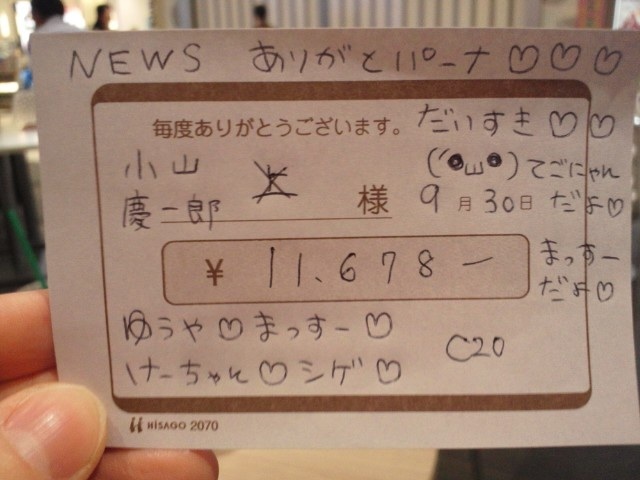 NEWS ありがとパーナ♡♡♡
毎度ありがとうございます。
だいすき♡♡
小山
慶一郎
様
(´●ω●)てごにゃん
9月30日 だよ♡
¥ 11,678—
まっすー
だよ♡
ゆうや♡まっすー♡
けーちゃん♡シゲ♡
C20
HISAGO 2070